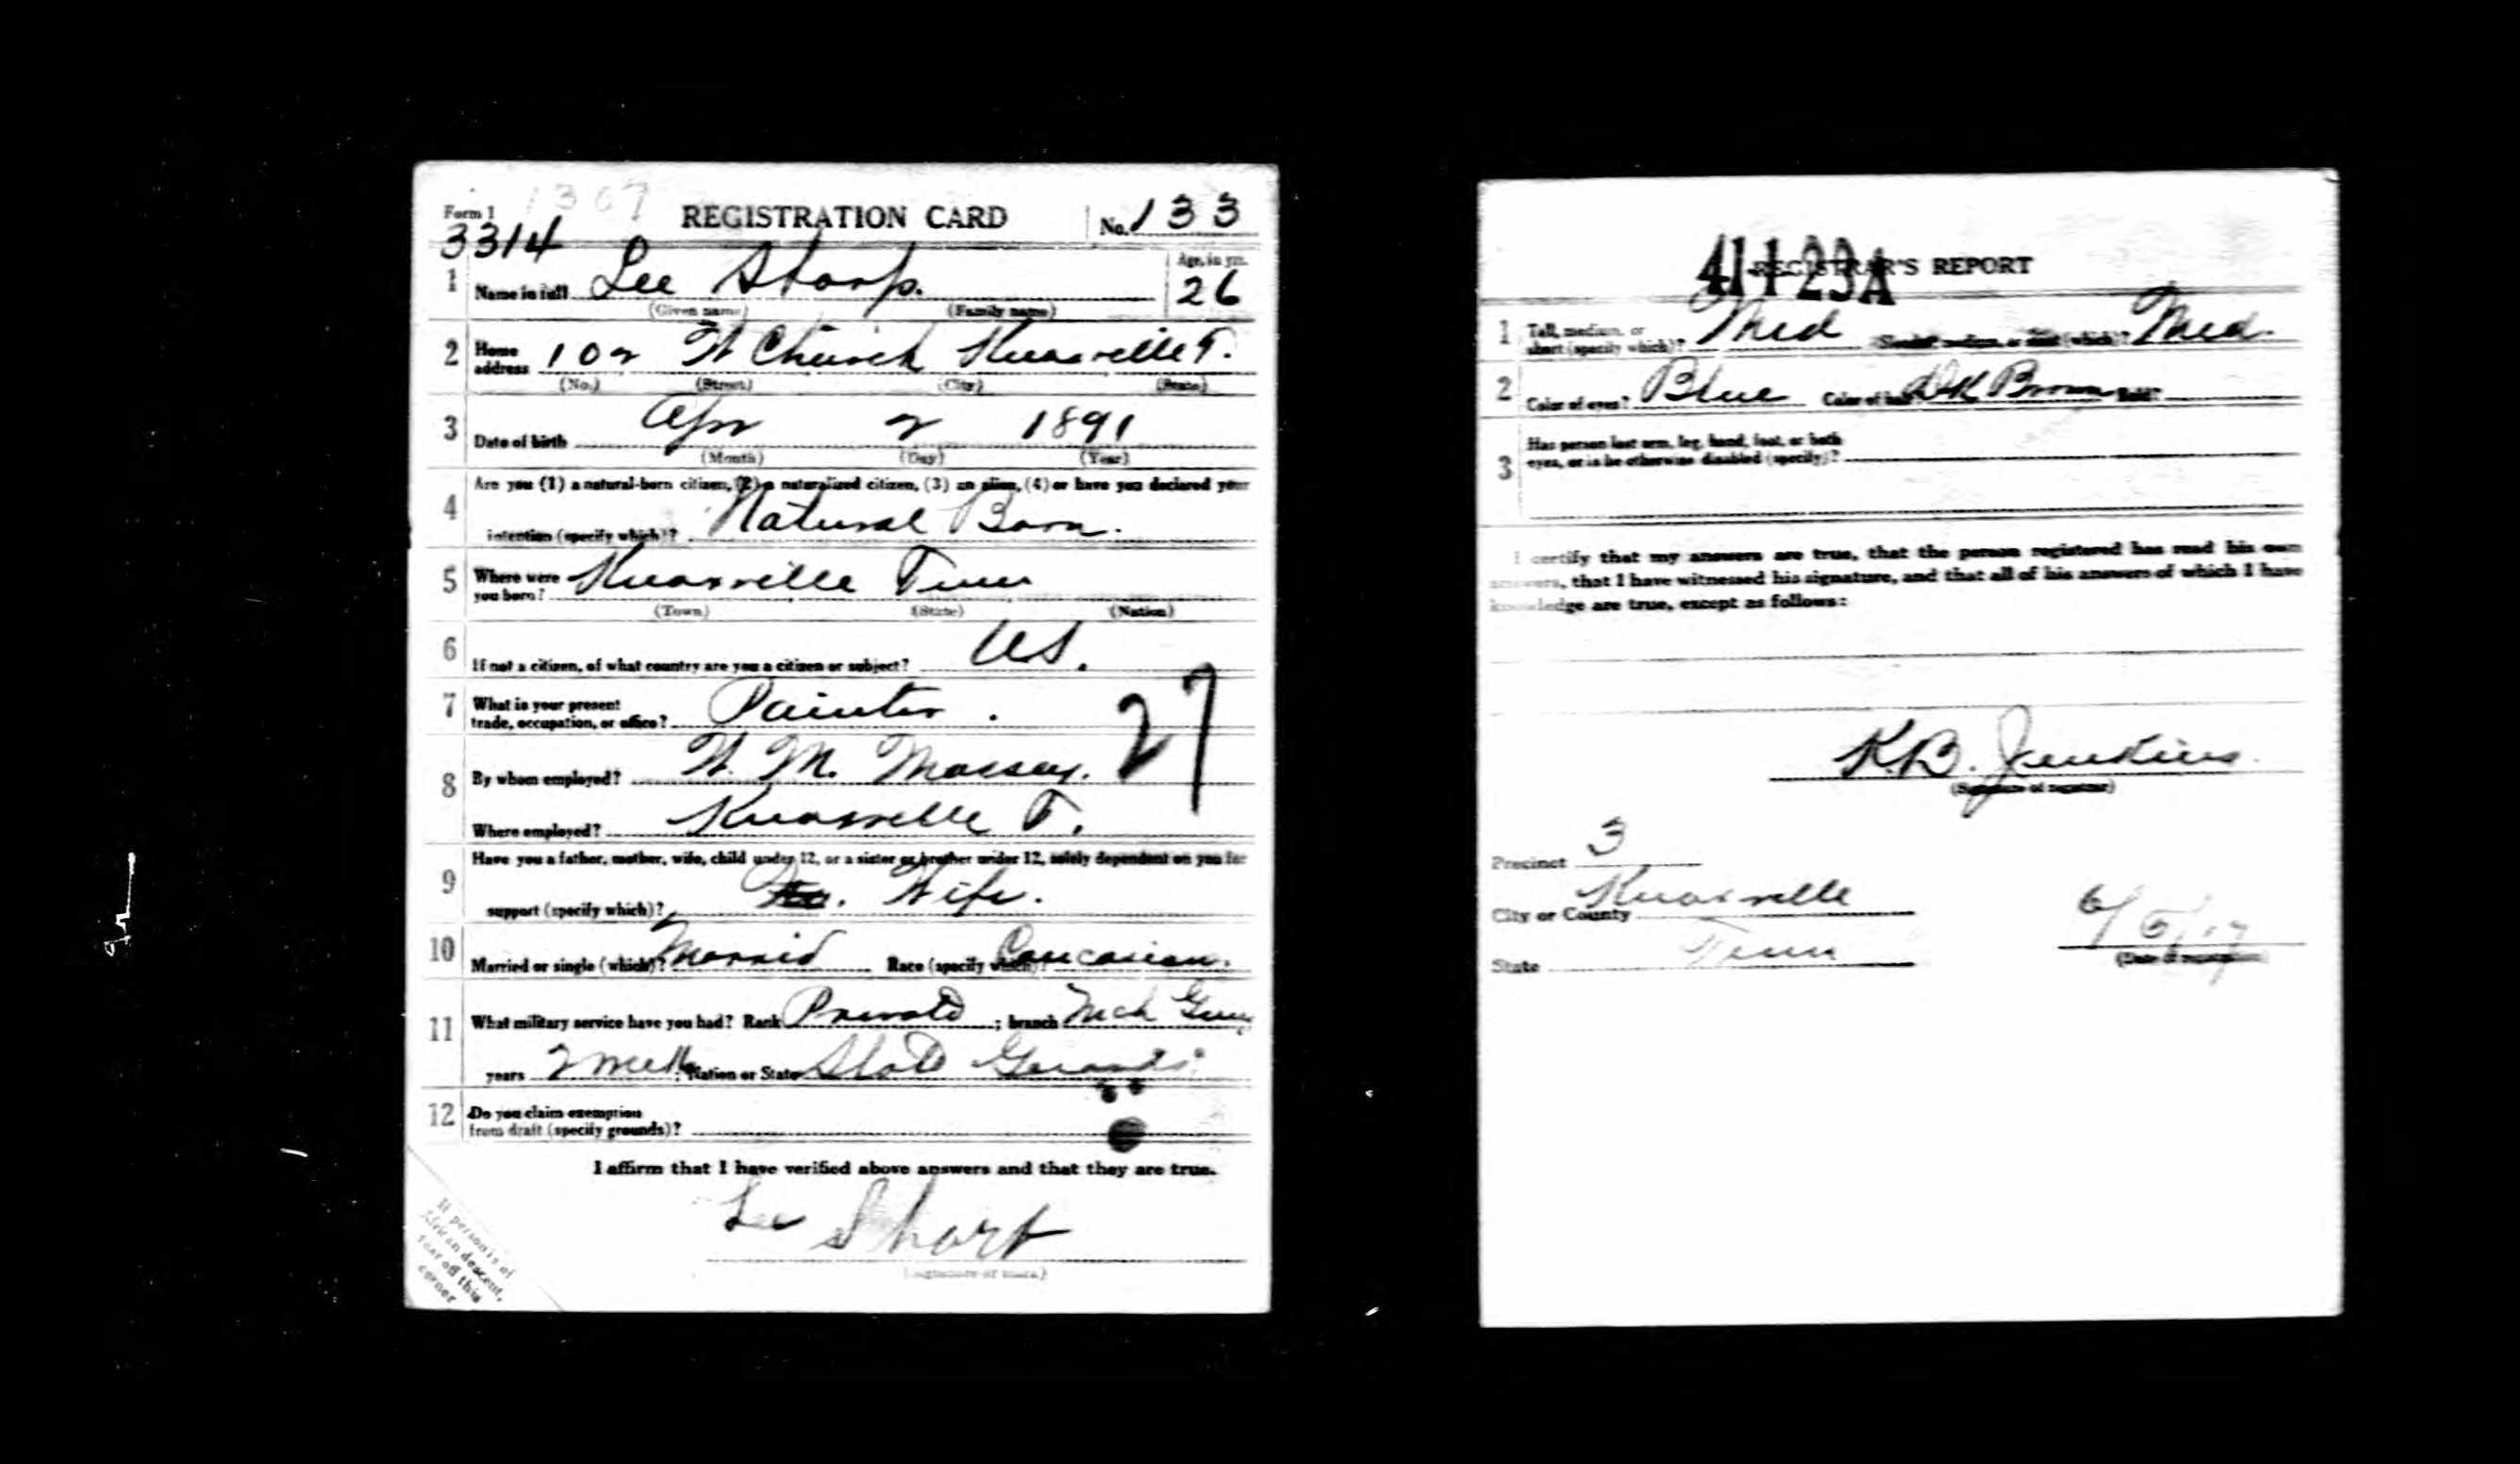 1307
Form 1 REGISTRATION CARD No. 133
3314
1 Name in full Lee Sharp. Age, in yrs. 26
(Given name) (Family name)
2 Home address 102 W Church Knoxville T.
(No.) (Street) (City) (State)
3 Date of birth Apr 2 1891
(Month) (Day) (Year)
4 Are you (1) a natural-born citizen, (2) a naturalized citizen, (3) an alien, (4) or have you declared your
intention (specify which)? Natural Born.
5 Where were you born? Knoxville Tenn
(Town) (State) (Nation)
6 If not a citizen, of what country are you a citizen or subject? US.
7 What is your present
trade, occupation, or office? Painter.
27
8 By whom employed? W. M. Massey.
Where employed? Knoxville T.
9 Have you a father, mother, wife, child under 12, or a sister or brother under 12, solely dependent on you for
support (specify which)? Wife.
10 Married or single (which)? Married Race (specify which)? Caucasian.
11 What military service have you had? Rank Private ; branch
years 2 ; Nation or State State Guards
12 Do you claim exemption
from draft (specify grounds)?
I affirm that I have verified above answers and that they are true.
Lee Sharp
(Signature or mark)
If person is of
African descent,
tear off this
corner
41-1-23A
REGISTRAR'S REPORT
1 Tall, medium, or
short (specify which)? Med Slender, medium, or stout (which)? Med.
2 Color of eyes? Blue Color of hair? DK Brown Bald?
3 Has person lost arm, leg, hand, foot, or both
eyes, or is he otherwise disabled (specify)?
I certify that my answers are true, that the person registered has read his own
answers, that I have witnessed his signature, and that all of his answers of which I have
knowledge are true, except as follows:
K.B. Jenkins.
(Signature of registrar)
Precinct 3
City or County Knoxville
State Tenn
6/5/17
(Date of registration)